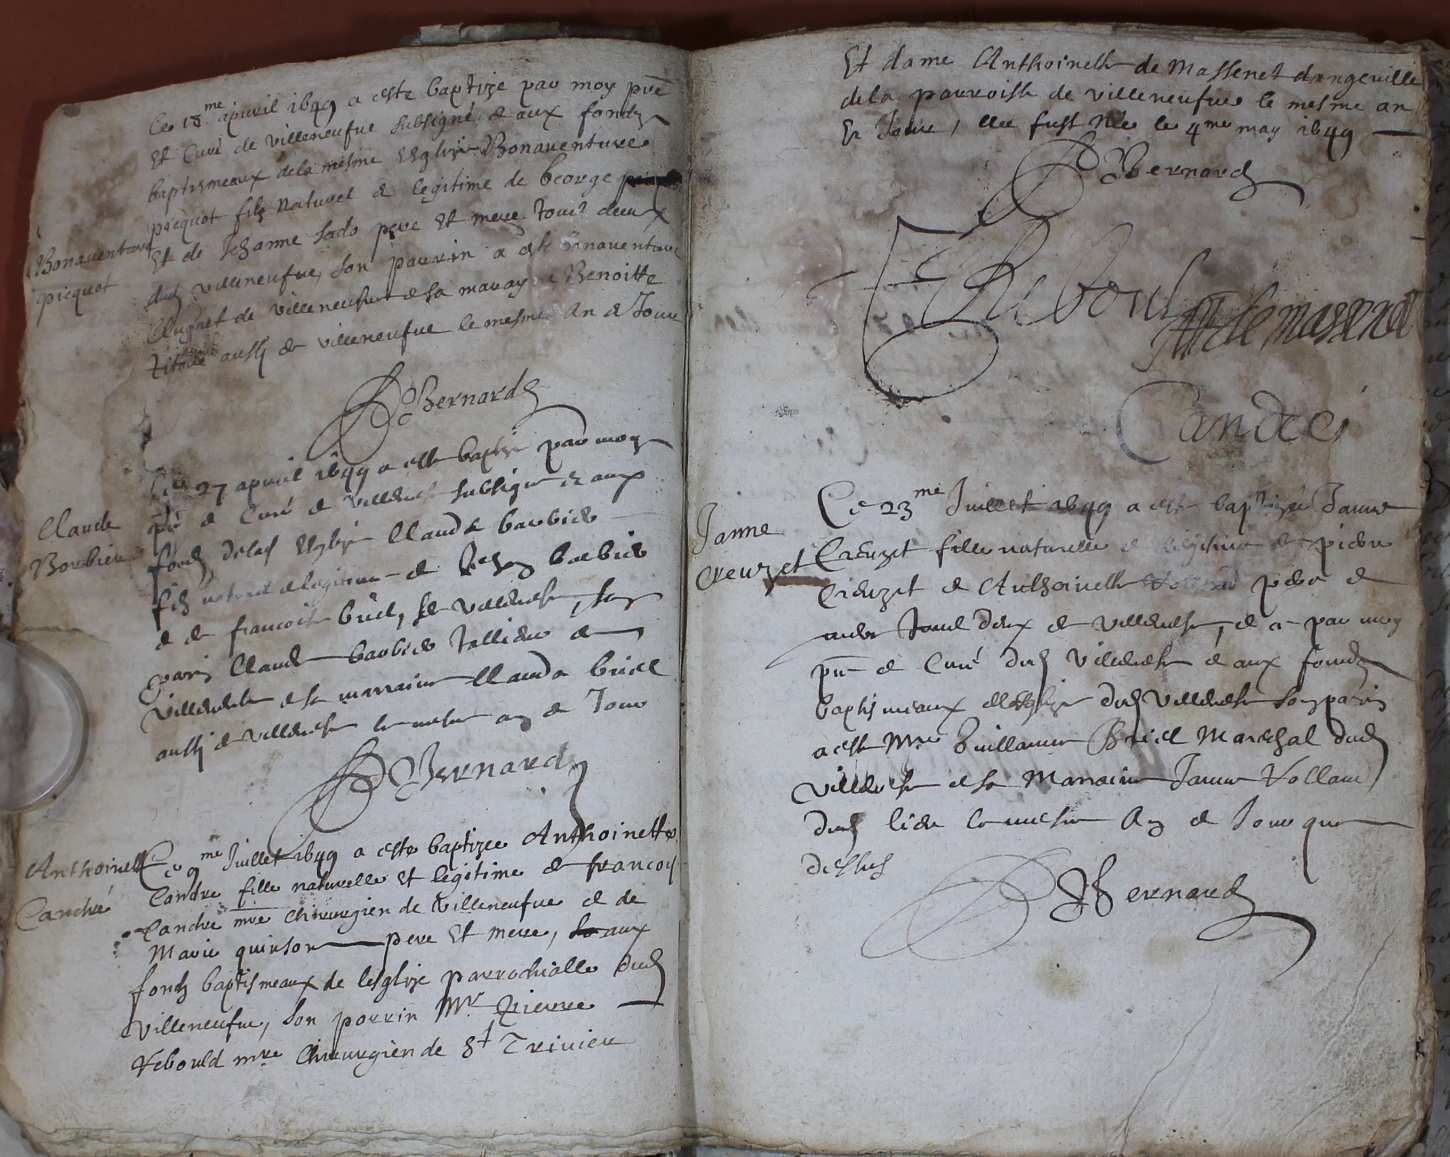 Ce 18me apuril 1649 a este baptize par moy pre
Et Curé de villeneufue subsigné, & aux fondz
baptismeaux dela mesme Esglize Bonauenture
picquot filz naturel & legitime de George
Et de Jehanne pere Et mere tout deux
dud villeneufue, son parrin a este Bonauenture
de villeneufue & sa maray Benoitte
aussi de villeneufue le mesme An & Jour
Bonauenture
picquot
Bernard
Ce 27 apuril 1649 a este baptize par moy
pre & Curé de villeneufue subsigne & aux
fondz delad Esglize Claude barbier
filz naturel & legitime de Jehan barbier
& de francoise de villeneufue, son
parin Claude barbier de
villeneufue & sa marraine Clauda
aussi de villeneufue le mesme an & Jour
Claude
Barbier
Bernard
Ce 9me Juillet 1649 a este baptizee Anthoinette
Candre fille naturelle Et legitime de francoy
Candre mre chirurgien de villeneufue et de
Marie quinson pere Et mere, aux
fondz baptismeaux de lesglize parrochialle dud
villeneufue, son parrin Mre pierre
Rebould mre chirurgien de St Triuier
Anthoinette
Candre
Et dame Anthoinette de Massenet dangeuille
dela parroisse de villeneufue le mesme an
Et Jour, elle fust Née le 4me may 1649
Bernard
Reboul
de massenet
Candre
Ce 23me Juillet 1649 a este baptizée Janne
Creuzet fille naturelle & legitime de pierre
Creuzet & Anthoinette pere &
mere tout deux de villeneufue, & a par moy
pre & Curé dud villeneufue & aux fondz
baptismeaux de lesglize dud villeneufue son parin
a este Mre Guillaume Mareschal dud
villeneufue & sa Marraine Janne Volland
dud lieu le mesme An & Jour que
dessus
Janne
Creuzet
Bernard